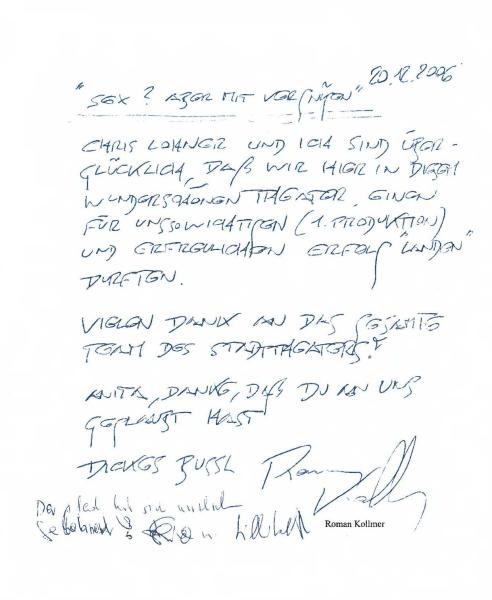 20.12.2006
"SEX? ABER MIT VERGNÜGEN"
CHRIS LOHNER UND ICH SIND ÜBER-
GLÜCKLICH, DAß WIR HIER IN DIESEM
WUNDERSCHÖNEN THEATER, EINEN
FÜR UNS SO WICHTIGEN (1. PRODUKTION)
UND ERFREULICHEN ERFOLG "LANDEN"
DURFTEN.
VIELEN DANK AN DAS GESAMTE
TEAM DES STADTTHEATERS!
ANITA, DANKE, DAß DU AN UNS
GEGLAUBT HAST
DICKES BUSSL Roman
Der hat sich wirklich
Roman Kollmer